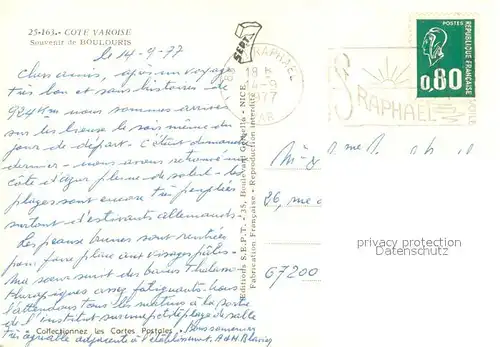 25-163.- COTE VAROISE
Souvenir de BOULOURIS
le 14-9-77
Chers amis, après un voyage
très bon et sans histoires - de
924 Km nous sommes arrivés
sur les lieux le soir même du
jour de départ. C'était dimanche
dernier - nous avons retrouvé une
côte d'azur pleine de soleil - les
plages sont encore très peuplées
surtout d'estivants allemands.
Les peaux brunes sont rentrées
pour faire place aux visages pâles.
Ma soeur suit des bains thalasso-
thérapiques assez fatigants. Nous
l'attendons tous les matins à la sortie
de l'institut sur une petite plage de sable
très agréable adjacente à l'établissement.
Bons souvenirs
A & H
Collectionnez les Cartes Postales
Editions S.E.P.T. - 35, Boulevard - NICE
Fabrication Française - Reproduction interdite
SEPT
RAPHAEL
18 H
14-9
1977
VAR
St RAPHAEL
POSTES
REPUBLIQUE FRANÇAISE
0,80
86,
67200
privacy protection
Datenschutz